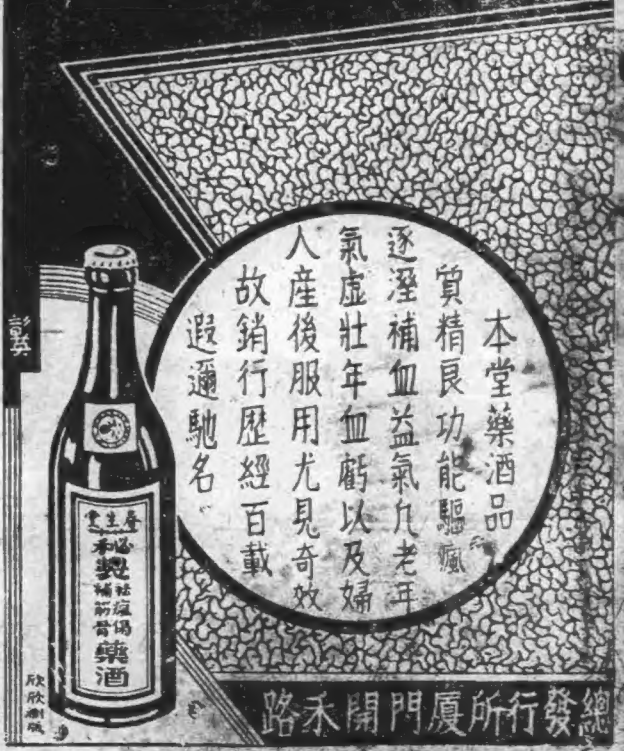 本堂藥酒品
質精良功能驅瘋
逐溼補血益氣凢老年
氣虛壯年血虧以及婦
人產後服用尤見奇效
故銷行歷經百載
遐邇馳名
春生堂
秘製祛瘋傷
補筋骨藥酒
欣欣製版
總發行所廈門開禾路